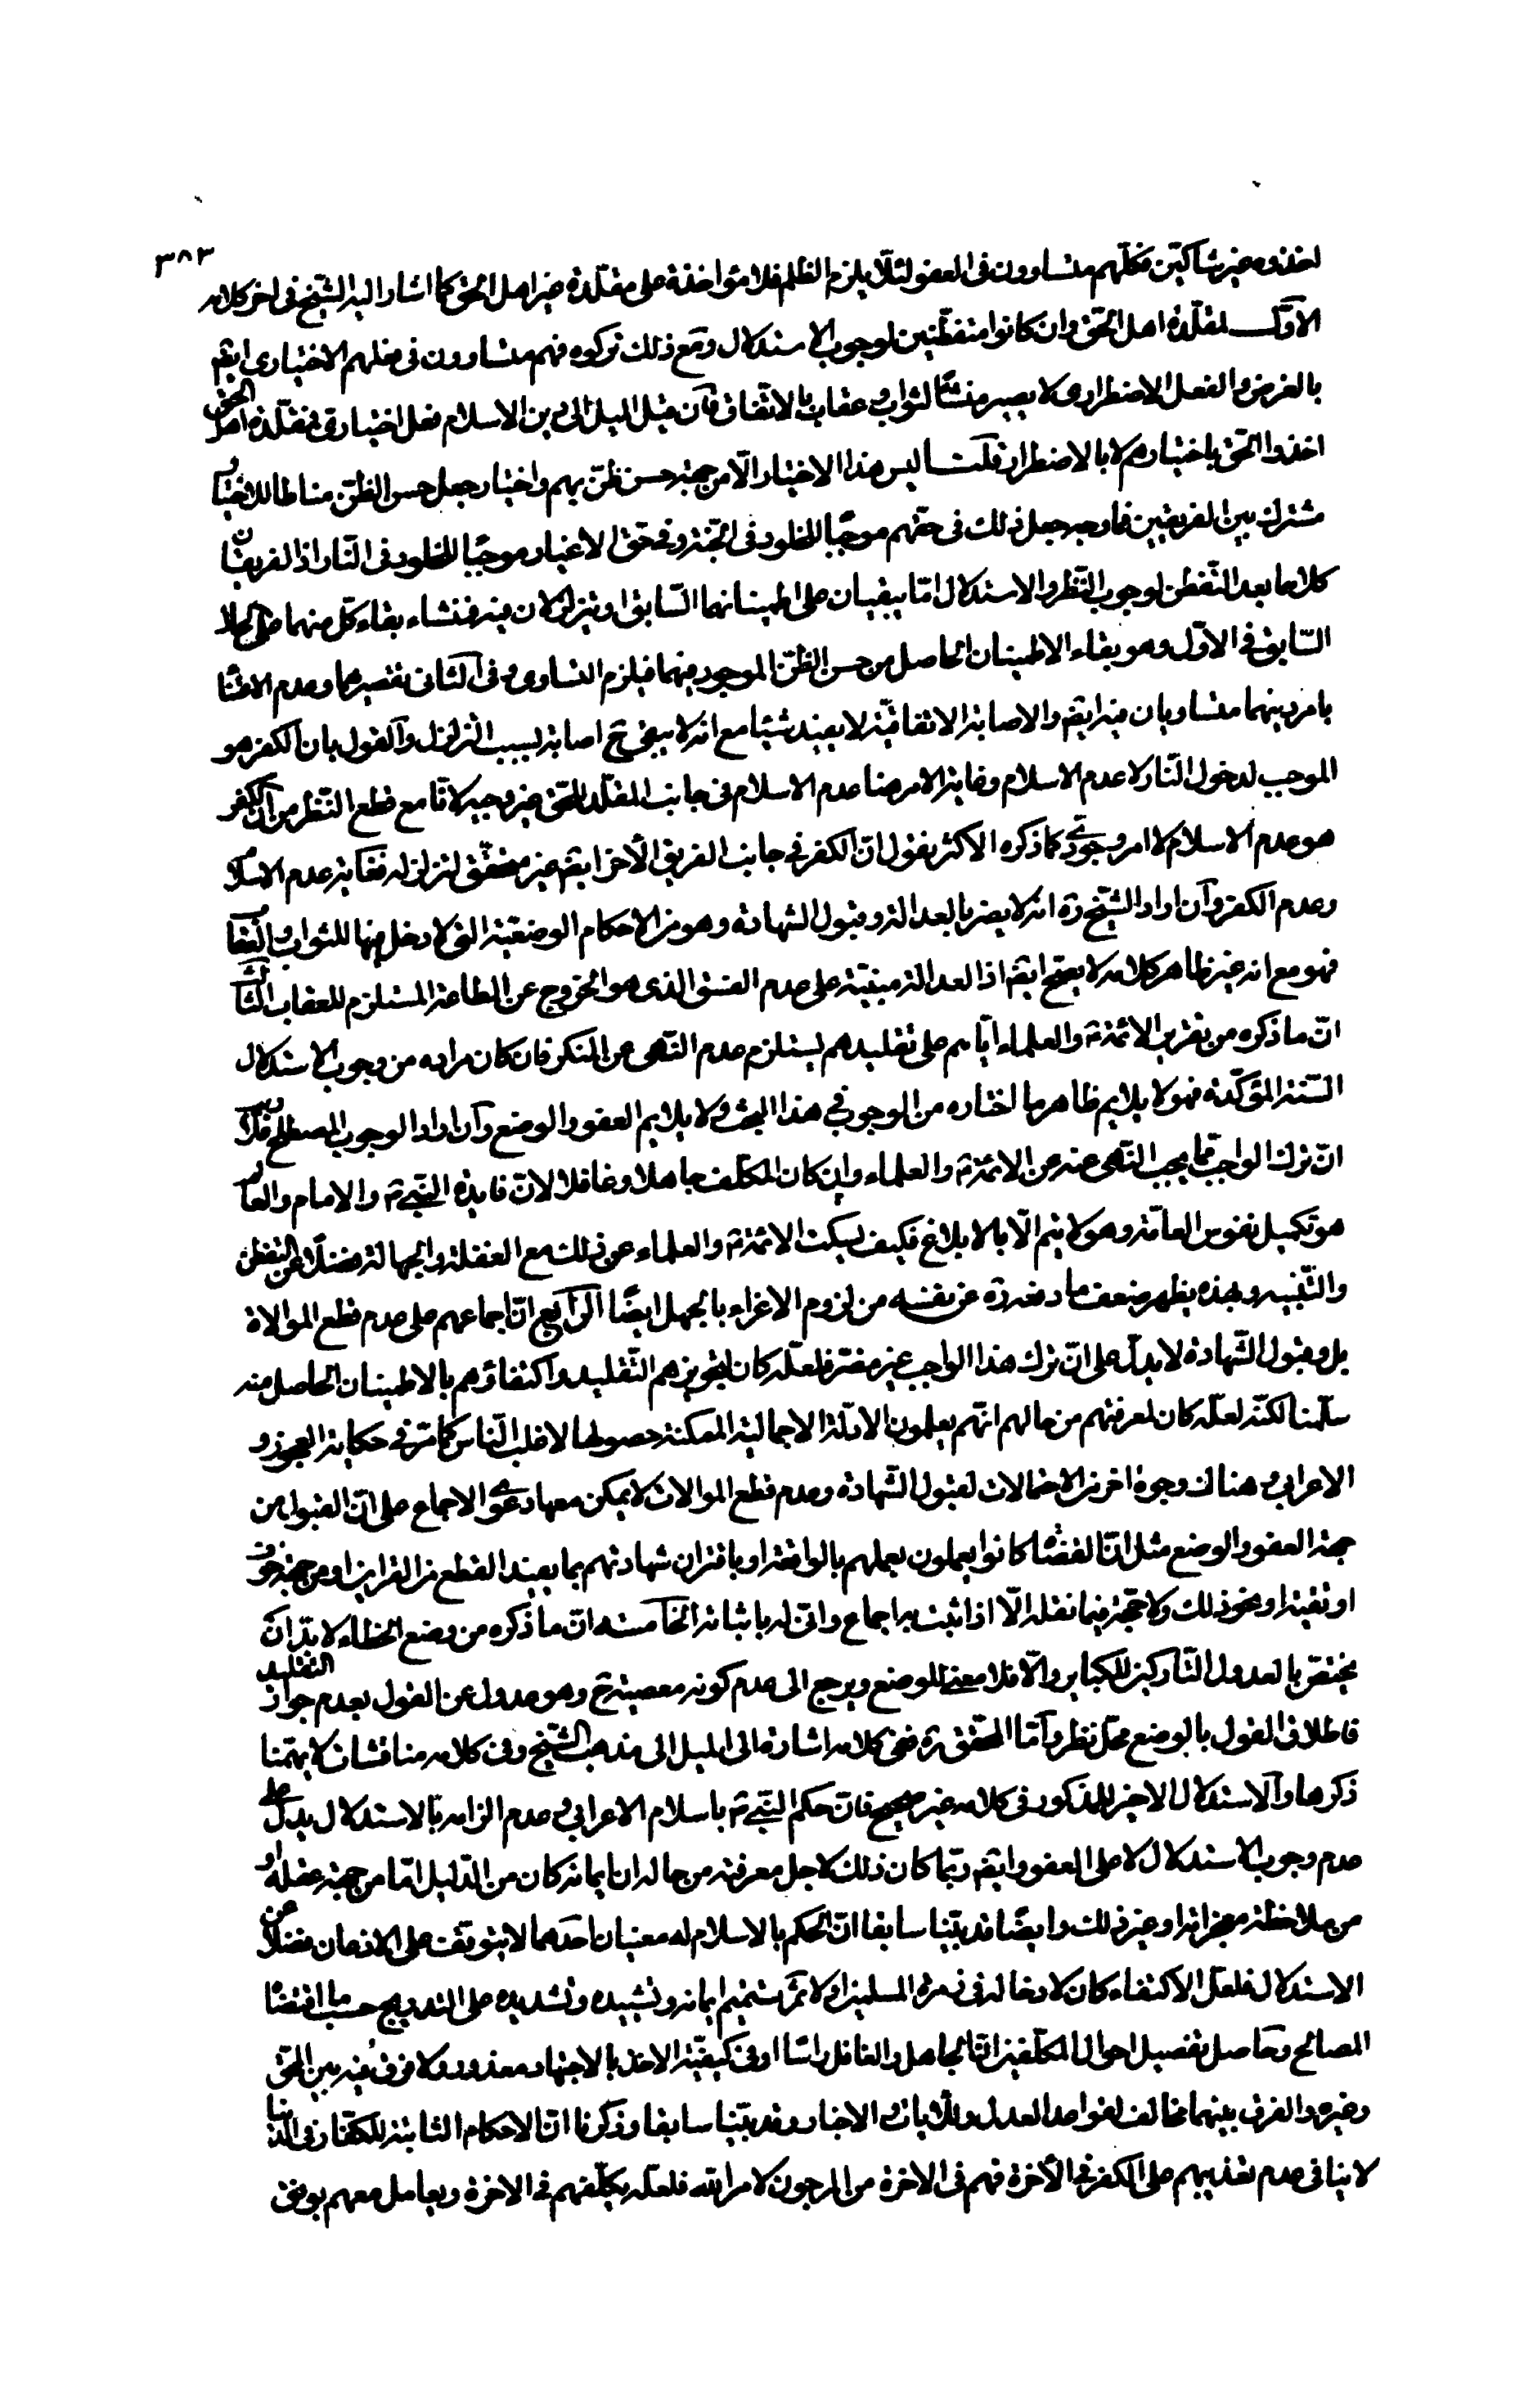 ٣٨٣
اخذوه غير شاكين فكلهم متساوون فى العفو لئلا يلزم الظلم فلا مؤاخذة على مقلدة غير اهل الحق كما اشار اليه الشيخ فى اخر كلامه
الاول لمقلدة اهل الحق وان كانوا متفطنين لوجوب الاستدلال ومع ذلك تركوه فهم متساوون فى فعلهم الاختيارى ايضا
بالفرض والفعل الاضطرارى لا يصير منشأ لثواب وعقاب بالاتفاق فان قيل الميل الى دين الاسلام فعل اختيارى فمقلدة اهل الحق
اخذوا الحق باختيارهم لا بالاضطرار قلت ليس هذا الاختيار الا من جهة حسن ظن بهم واختيار جعل حسن الظن مناطا للاختيار
مشترك بين الفريقين فما وجه جعل ذلك فى حقهم موجبا للخلود فى الجنة وفى حق الاغيار موجبا للخلود فى النار اذ الفريقان
كلاهما بعد التفطن لوجوب النظر والاستدلال اما يبقيان على اطمينانهما السابق او يتزلزلان فيه فمنشاء بقاء كل منهما على
السابق فى الاول وهو بقاء الاطمينان الحاصل من حسن الظن الموجود فيهما فيلزم التساوى وفى الثانى تقصيرهما وعدم الاعتناء
بامر دينهما متساويان فيه ايضا والاصابة الاتفاقية لا يفيد شيئا مع انه لا يبقى ح اصابة بسبب التزلزل والقول بان الكفر هو
الموجب لدخول النار لا عدم الاسلام وغاية الامر هنا عدم الاسلام فى جانب المقلد للحق غير وجيه لانا مع قطع النظر من ان الكفر
هو عدم الاسلام لا امر وجودى كما ذكره الاكثر نقول ان الكفر فى جانب الفريق الاخر ايضا غير متحقق لتزلزله فغايته عدم الاسلام
وعدم الكفر وان اراد الشيخ ره انه لا يضر بالعدالة وقبول الشهادة وهو من الاحكام الوضعية التى لا دخل فيها للثواب والعقاب
فهو مع انه غير ظاهر كلامه لا يصح ايضا اذ العدالة مبنية على عدم الفسق الذى هو الخروج عن الطاعة المستلزم للعقاب الثالث
ان ما ذكره من تقرير الائمة ع والعلماء اياهم على تقليدهم يستلزم عدم النهى عن المنكر فان كان مراده من وجوب الاستدلال
السنة المؤكدة فهو لا يلايم ظاهر ما اختاره من الوجوب فى هذا البحث ولا يلايم العفو والوضع وان اراد الوجوب المصطلح فلا ريب
ان ترك الواجب مما يجب النهى عنه عن الائمة ع والعلماء وان كان المكلف جاهلا وغافلا لان فايدة النبى ص والامام والعالم
هو تكميل نفوس العامة وهو لا يتم الا بالابلاغ فكيف يسكت الائمة ع والعلماء عن ذلك مع الغفلة والجهالة فضلا عن التفطن
والتنبيه وبهذه يظهر ضعف ما دفعه ره عن نفسه من لزوم الاغراء بالجهل ايضا الرابع ان اجماعهم على عدم قطع الموالاة
بل وقبول الشهادة لا يدل على ان ترك هذا الواجب غير مضر فلعله كان لتجويزهم التقليد واكتفاؤهم بالاطمينان الحاصل منه
سلمنا لكنه لعله كان لمعرفتهم من حالهم انهم يعلمون الادلة الاجمالية الممكنة حصولها لاغلب الناس كما مر فى حكاية العجوز و
الاعرابى وهناك وجوه اخر من الاحتمالات لقبول الشهادة وعدم قطع الموالات لا يمكن معها دعوى الاجماع على ان القبول من
جهة العفو والوضع مثل ان القضاة كانوا يعملون بعلمهم بالواقعة او باقتران شهادتهم بما يفيد القطع من القراين او من جهة خوف
او تقية او نحو ذلك ولا حجية فيما نقله الا اذا ثبت به اجماع وانى له باثباته الخامس ان ما ذكره من وضع الخطاء لا بد ان
يختص بالعدول التاركين للكباير والا فلا معنى للوضع ويرجع الى عدم كونه معصية ح وهو عدول عن القول بعدم جواز التقليد
فاطلاق القول بالوضع محل نظر واما المحقق ره ففى كلامه اشارة الى الميل الى مذهب الشيخ وفى كلامه مناقشات لا يهمنا
ذكرها والاستدلال الاخير المذكور فى كلامه غير صحيح فان حكم النبى ص باسلام الاعرابى وعدم الزامه بالاستدلال يدل على
عدم وجوب الاستدلال لا على العفو وايضا ربما كان ذلك لاجل معرفته من حاله ان ايمانه كان من الدليل اما من جهة عقله او
من ملاحظة معجزاته او غير ذلك وايضا قد بينا سابقا ان الحكم بالاسلام له معنيان احدهما لا يتوقف على الاذعان فضلا عن
الاستدلال فلعل الاكتفاء كان لادخاله فى زمرة المسلمين اولا ثم تتميم ايمانه وتشييده وتشديده على التدريج حسب ما اقتضا
المصالح وحاصل تفصيل احوال المكلفين ان الجاهل والغافل راسا او فى كيفية الاخذ بالاجتهاد معذور ولا فرق فيه بين المحق
وغيره والفرق بينهما مخالف لقواعد العدل وللايات والاخبار وقد بينا سابقا وذكرنا ان الاحكام الثابتة للكفار فى الدنيا
لا ينافى عدم تعذيبهم على الكفر فى الاخرة فهم فى الاخرة من المرجون لامر الله فلعله يكلفهم فى الاخرة ويعامل معهم بوفق